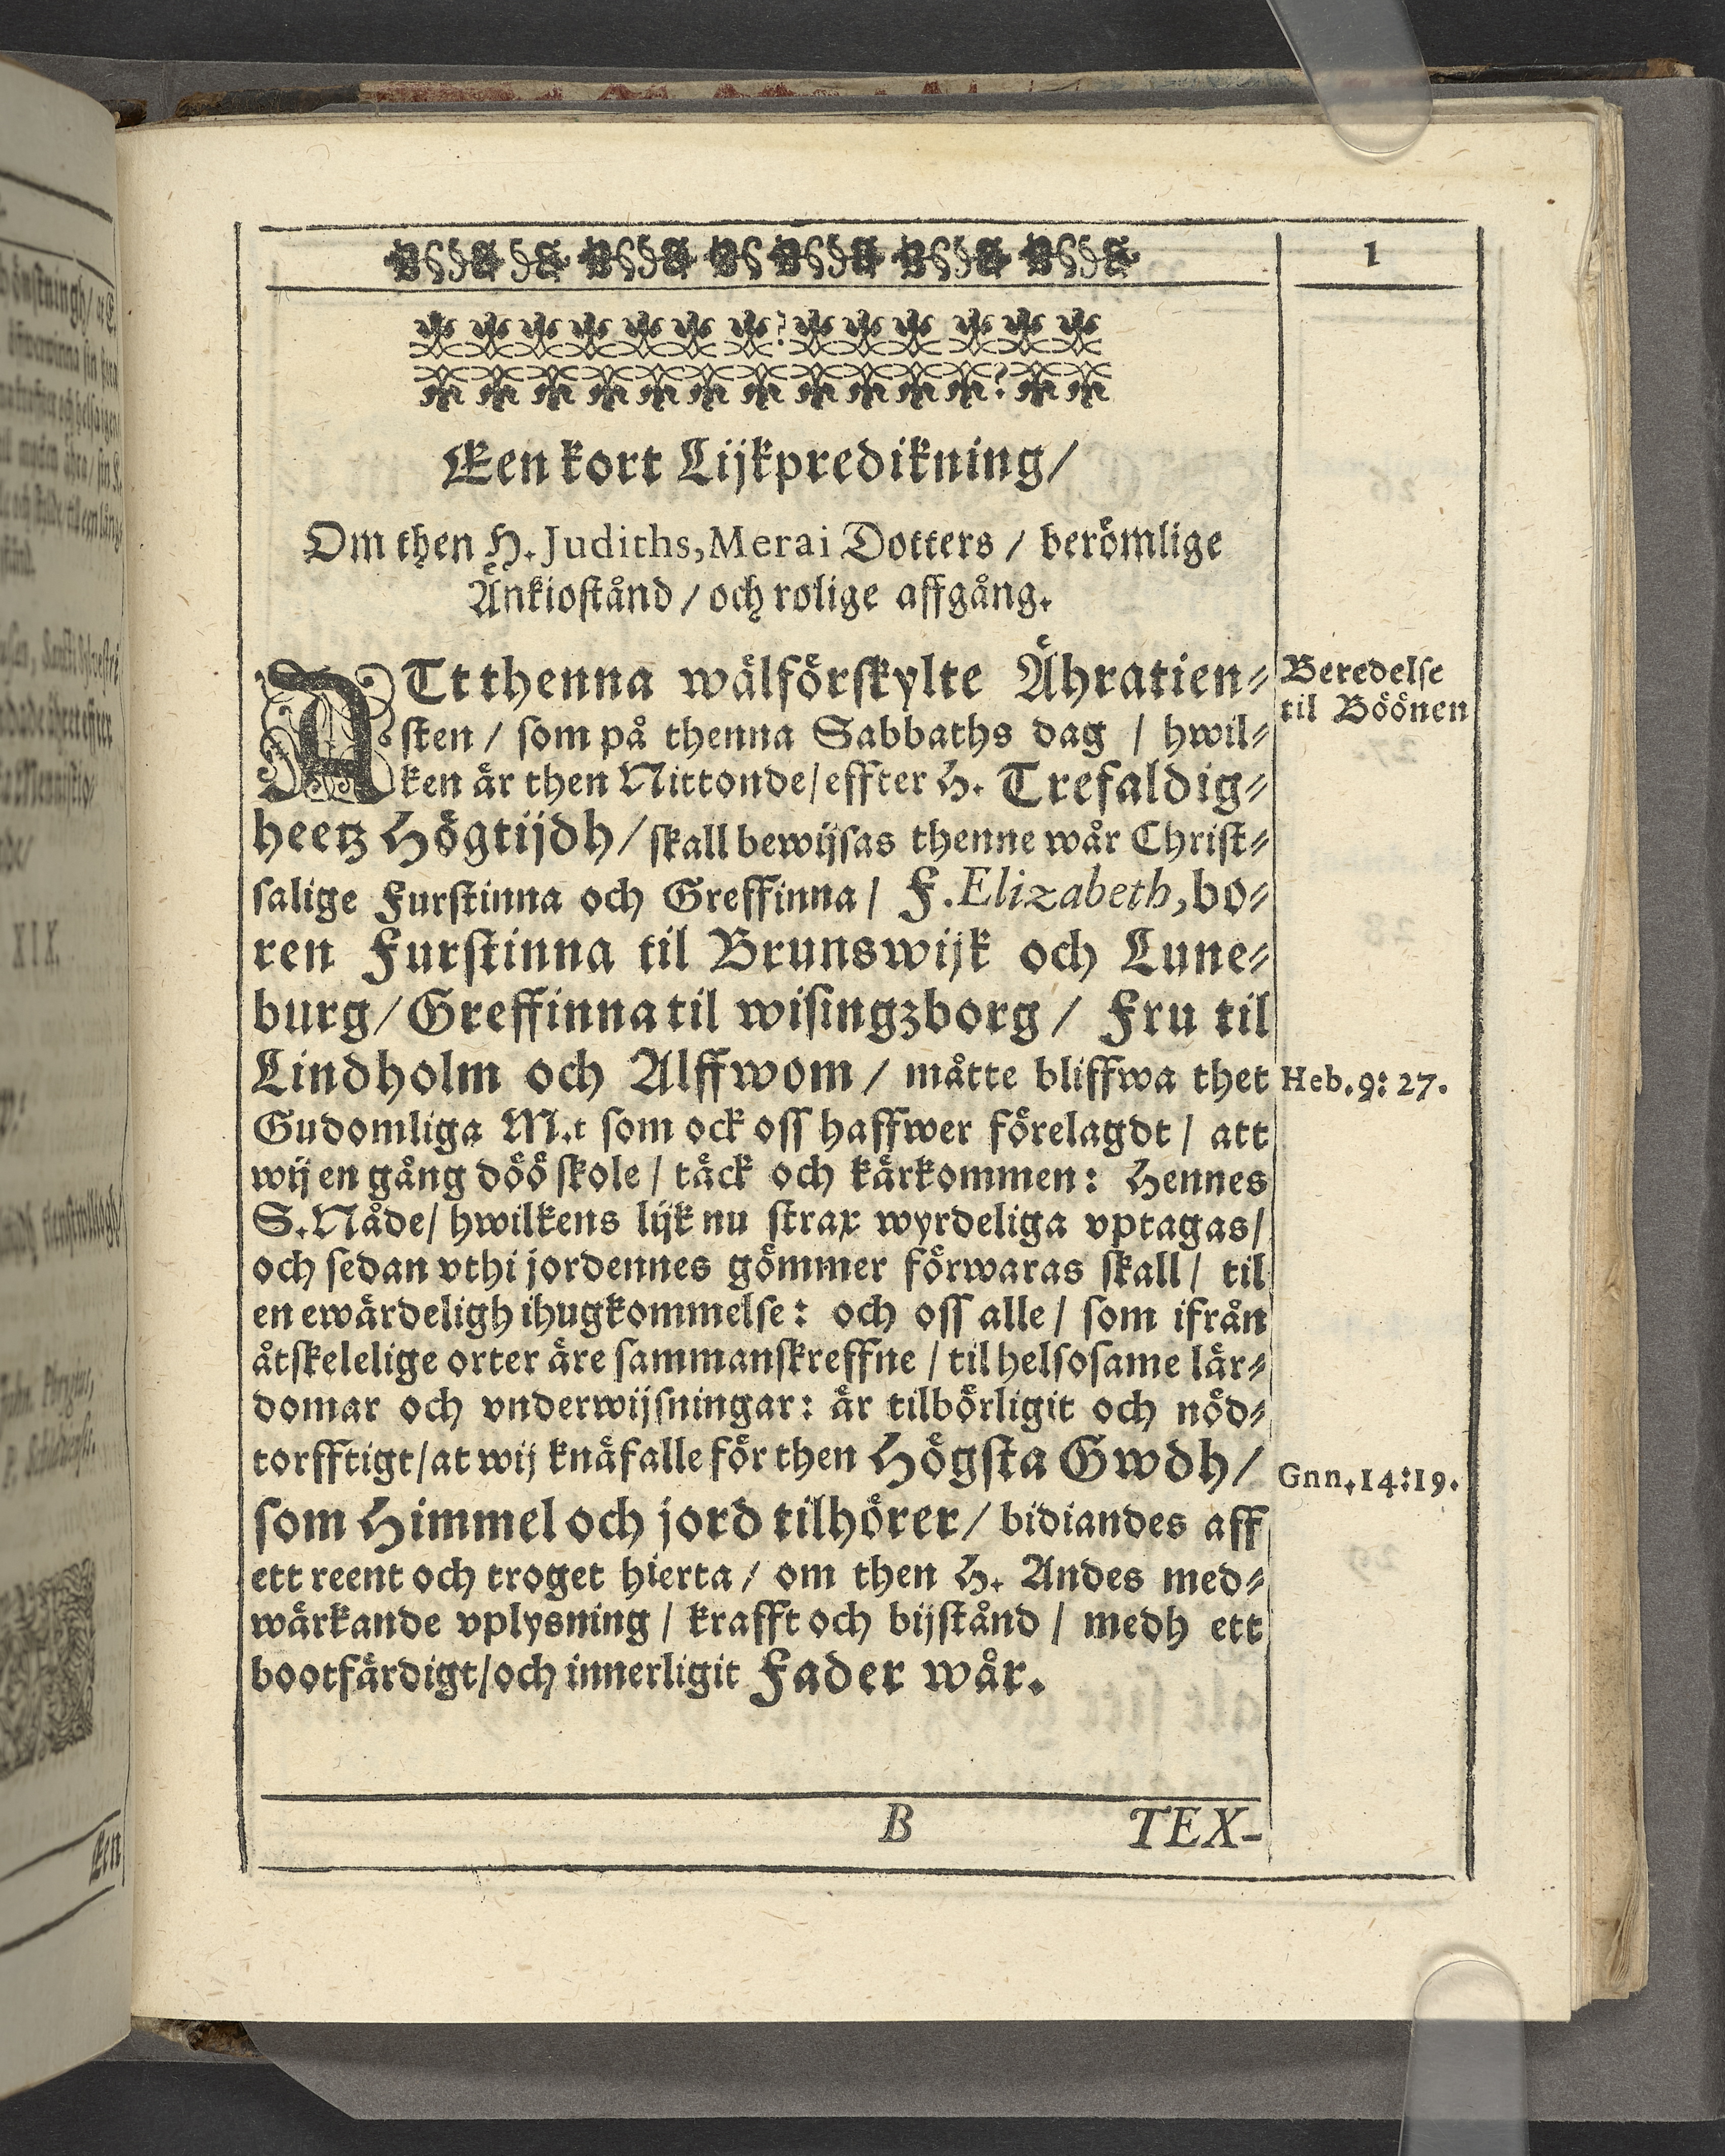 1
Een kort Lijkpredikning/
Om then H. Judiths, Merai Dotters / berömlige
Änkiostånd / och rolige affgång.
ATt thenna wälförskylte Ähratien⸗
sten / som på thenna Sabbaths dag / hwil⸗
ken är then Nittonde/ effter H. Trefaldig⸗
heetz Högtijdh / skall bewijsas thenne wår Christ⸗
salige Furstinna och Greffinna / F. Elizabeth, bo⸗
ren Furstinna til Brunswijk och Lune⸗
burg / Greffinna til wisingzborg / Fru til
Lindholm och Alffwom / måtte bliffwa thet
Gudomliga M.t som ock oss haffwer förelagdt / att
wij en gång döö skole / täck och kärkommen: Hennes
S. Nåde/ hwilkens lijk nu strax wyrdeliga vptagas/
och sedan vthi jordennes gömmer förwaras skall / til
en ewärdeligh ihugkommelse: och oss alle / som ifrån
åtskelelige orter äre sammanskreffne / til helsosame lär⸗
domar och vnderwijsningar: är tilbörligit och nöd⸗
torfftigt/ at wij knäfalle för then Högsta Gwdh /
som Himmel och jord tilhörer / bidiandes aff
ett reent och troget hierta / om then H. Andes med⸗
wärkande vplysning / krafft och bijstånd / medh ett
bootfärdigt/ och innerligit Fader wår.
Beredelse
til Böönen
Heb. 9: 27.
Gnn. 14:19.
B TEX-
XIX.
Een